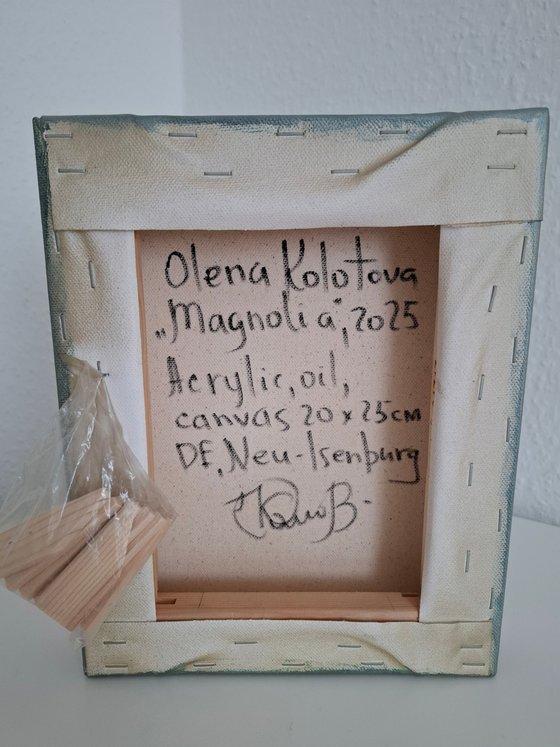 Olena Kolotova
„Magnolia", 2025
Acrylic, oil,
canvas 20 x 25cm
DE, Neu-Isenburg